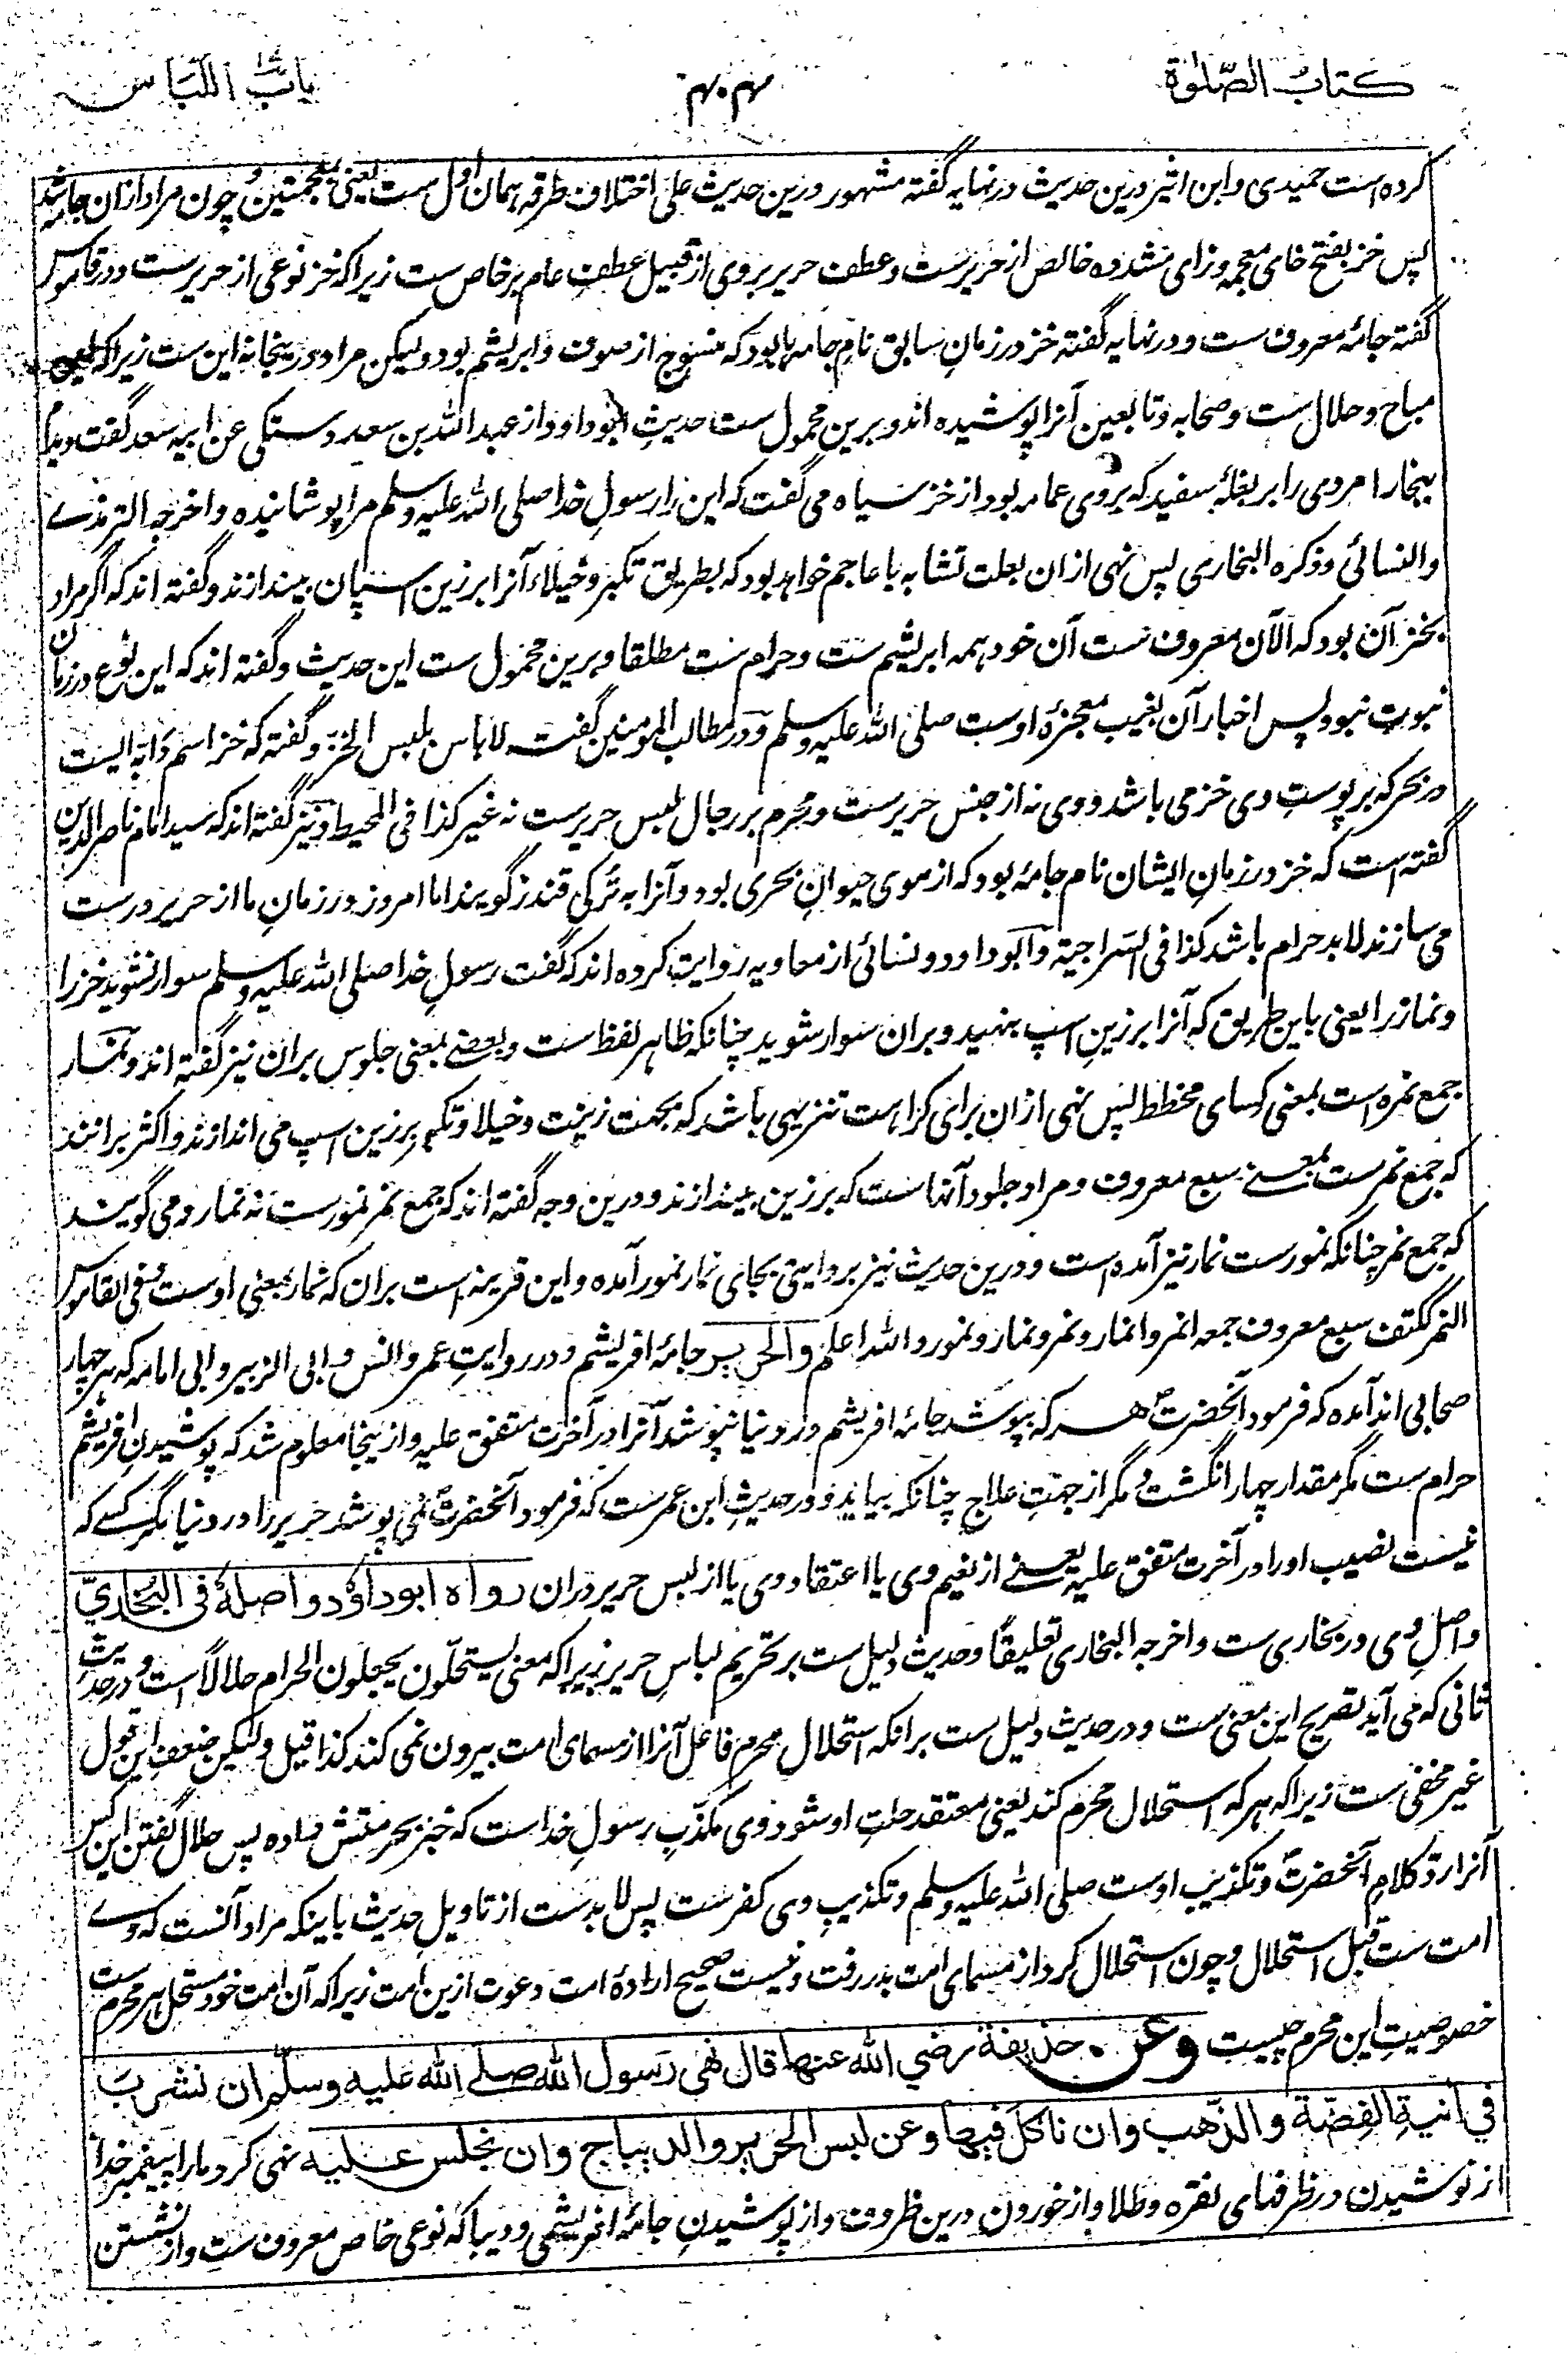 کتاب الصّلوٰة
۴۰۴
باب اللباس
کرده است حمیدی وابن اثیر درین حدیث در نهایه گفته مشهور درین حدیث علی اختلاف طرقه همان اول ست یعنی بمعجمتین و چون مراد ازان جامه باشد
پس خز بفتح خای معجمه و زای مشدده خالص از حریرست و عطف حریر بروی از قبیل عطف عام بر خاص ست زیرا که خز نوعی از حریرست و در قاموس
گفته جامۀ معروف ست و در نهایه گفته خز در زمانِ سابق نامِ جامه ها بود که منسوج از صوف و ابریشم بود ولیکن مراد درینجا نه این ست زیرا که این
مباح و حلال ست و صحابه و تابعین آنرا پوشیده اند و برین محمول ست حدیثِ ابو داود از عبد الله بن سعد دستکی عن ابیه سعد گفت دیدم
ببخارا مردی را بر بغلۀ سفید که بروی عمامه بود از خز سیاه می گفت که این را رسولِ خدا صلی الله علیه وسلم مرا پوشانیده و اخرجه الترمذے
والنسائی و ذکره البخاری پس نهی ازان بعلت تشابه با عاجم خواهد بود که بطریق تکبر و خیلاء آنرا بر زین اسپان بیندازند و گفته اند که اگر مراد
بخز آن بود که الآن معروف ست آن خود همه ابریشم ست و حرام ست مطلقا و برین محمول ست این حدیث و گفته اند که این نوع در زمان
نبوت نبود پس اخبار آن بغیب معجزۀ اوست صلی الله علیه وسلم و در مطالب المؤمنین گفت لا باس بلبس الخز و گفته که خز اسم دابه ایست
در بحر که بر پوستِ وی خز می باشد و وی نه از جنس حریرست و محرم بر رجال لبس حریرست نه غیر کذا فی المحیط و نیز گفته اند که سید امام ناصر الدین
گفته است که خز در زمانِ ایشان نام جامۀ بود که از موی حیوانِ بحری بود و آنرا به ترکی قندز گویند اما امروز در زمانِ ما از حریر درست
می سازند لابد حرام باشد کذا فی السّراجیة و ابو داود و نسائی از معاویه روایت کرده اند که گفت رسولِ خدا صلی الله علیه وسلم سوار نشوید خز را
و نمار را یعنی باین طریق که آنرا بر زینِ اسپ بنهید و بران سوار شوید چنانکه ظاهر لفظ ست و بعضے بمعنی جلوس بران نیز گفته اند و نمار
جمع نمره است بمعنی کسای مخطط پس نهی ازان برای کراهت تنزیهی باشد که بجهت زینت و خیلا و تکبر بر زین اسپ می اندازند و اکثر برانند
که جمع نمرست بمعنے سبع معروف و مراد جلود آنهاست که بر زین بیندازند و درین وجه گفته اند که جمع نمر نمورست نه نمار و می گویند
که جمع نمر چنانکه نمورست نمار نیز آمده است و درین حدیث نیز بروایتی بجای نمار نمور آمده و این قرینه است بران که نمار بمعنی اوست و فی القاموس
النمر ککتف سبع معروف جمعه انمر و انمار و نمر و نمار و نمور و الله اعلم والحریر جامۀ افریشم و در روایتِ عمر و انس و ابی الزبیر و ابی امامه که هر چهار
صحابی اند آمده که فرمود آنحضرت ص هر که بپوشد جامۀ افریشم در دنیا نپوشد آنرا در آخرت متفق علیه و ازینجا معلوم شد که پوشیدنِ افریشم
حرام ست مگر مقدار چهار انگشت و مگر از جهتِ علاج چنانکه بیاید و در حدیثِ ابن عمرست که فرمود آنحضرت نمی پوشد حریر را در دنیا مگر کسے که
نیست نصیب او را در آخرت متفق علیه یعنے از نعیم وی یا اعتقاد وی یا از لبس حریر دران رواه ابوداؤد واصله فی البخاریّ
و اصلِ وی در بخاری ست و اخرجه البخاری تعلیقًا و حدیث دلیل ست بر تحریم لباسِ حریر زیرا که معنی یستحلّون یجعلون الحرام حلالًا است و در حدیث
ثانی که می آید تصریح این معنی ست و در حدیث دلیل ست برانکه استحلال محرم فاعل آنرا از مسمای امت بیرون نمی کند کذا قیل ولیکن ضعفِ این قول
غیر مخفی ست زیرا که هر که استحلال محرم کند یعنی معتقد حلتِ او شود وی مکذّبِ رسولِ خداست که خبر بحرمتش داده پس حلال گفتن این کس
آنرا ردّ کلامِ آنحضرت و تکذیبِ اوست صلی الله علیه وسلم و تکذیبِ وی کفرست پس لابدست از تاویلِ حدیث باینکه مراد آنست که وے
امت ست قبل استحلال و چون استحلال کرد از مسمای امت بدر رفت و نیست صحیح ارادۀ امت دعوت ازین امت زیرا که آن امت خود مستحل هر محرم ست
خصوصیتِ این محرم چیست وعن حذیفة رضي الله عنهما قال نهی رسول الله صلے الله علیه وسلم ان نشرب
في آنیةِ الفِضّة والذّهب وان نأکل فیها وعن لبس الحریر والدیباج وان نجلس علیه نهی کرد ما را پیغمبرِ خدا
از نوشیدن در ظرفهای نقره و طلا و از خوردن درین ظروف و از پوشیدنِ جامۀ افریشمی و دیبا که نوعی خاص معروف ست و از نشستن